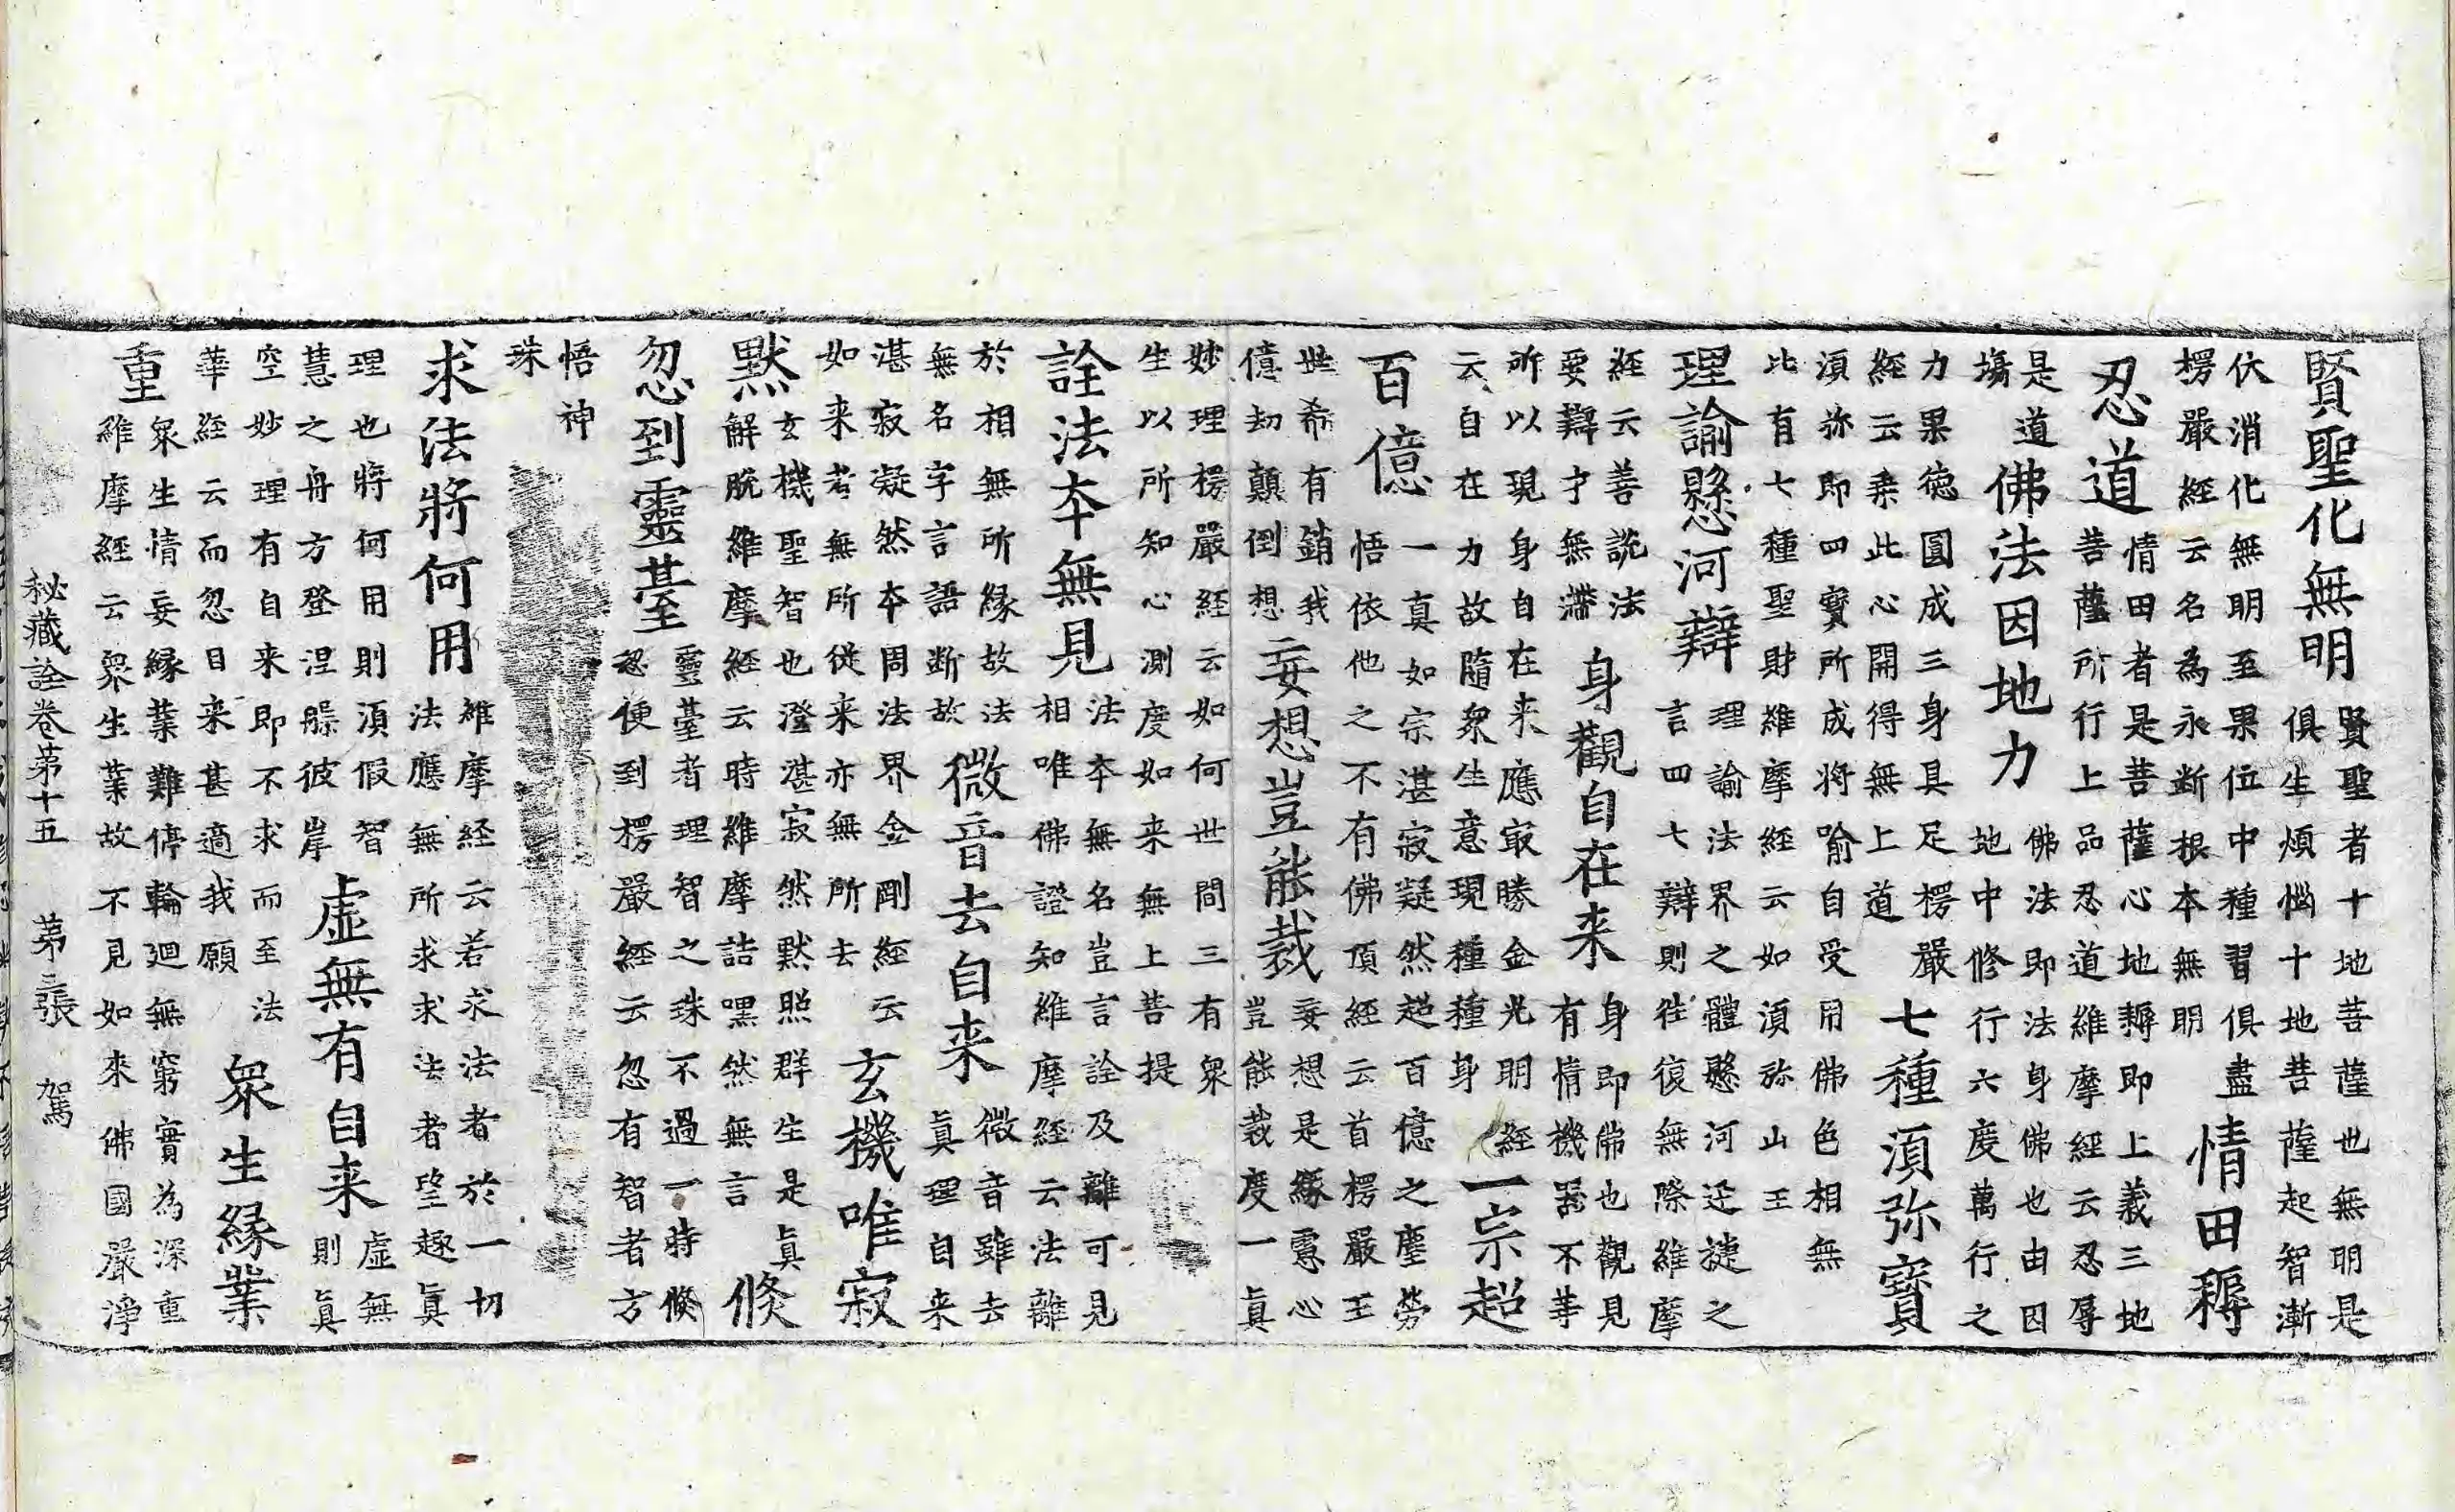 賢聖化無明
賢聖者十地菩薩也無明是
俱生煩惱十地菩薩起智漸
伏消化無明至果位中種習俱盡
楞嚴經云名為永断根本無明
情田耨
忍道
情田者是菩薩心地耨即上義三地
菩薩所行上品忍道維摩經云忍辱
是道
塲
佛法因地力
佛法即法身佛也由因
地中修行六度萬行之
力果德圓成三身具足楞嚴
經云乗此心開得無上道
七種須弥寳
須弥即四寳所成将喻自受用佛色相無
比有七種聖財維摩經云如須弥山王
理諭懸河辯
理諭法界之體懸河迅㨗之
言四七辯則往復無際維摩
經云善說法
要辯才無滯
身觀自在来
身即佛也觀見
有情機器不等
所以現身自在来應㝡勝金光明經
云自在力故隨衆生意現種種身
一宗超
百億
一真如宗湛寂凝然超百億之塵勞
悟依他之不有佛頂經云首楞嚴王
世希有銷我
億劫顛倒想
妄想豈能裁
妄想是緣慮心
豈能裁度一眞
妙理楞嚴經云如何世間三有衆
生以所知心測度如来無上菩提
詮法本無見
法本無名豈言詮及離可見
相唯佛證知維摩經云法離
於相無所緣故法
無名字言語断故
微音去自来
微音雖去
眞理自来
湛寂凝然本周法界金剛經云
如来者無所從来亦無所去
玄機唯寂
默
玄機聖智也澄湛寂然默照群生是眞
解脫維摩經云時維摩詰嘿然無言
倐
忽到靈臺
靈臺者理智之珠不過一時倐
忽便到楞嚴經云忽有智者方
悟神
珠
求法將何用
維摩經云若求法者於一切
法應無所求求法者望趣眞
理也將何用則須假智
慧之舟方登涅槃彼岸
虛無有自来
虛無
則眞
空妙理有自来即不求而至法
華經云而忽自来甚適我願
衆生緣業
重
衆生情妄緣業難停輪廻無窮實為深重
維摩經云衆生業故不見如來佛國嚴淨
秘藏詮卷第十五 第三張 駕